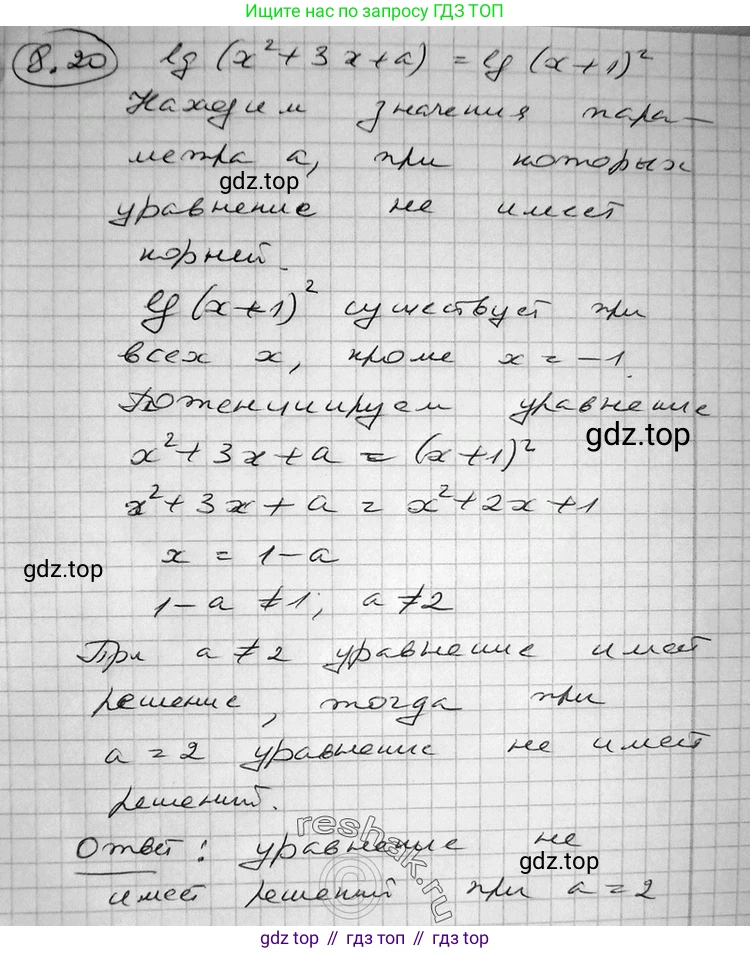 Больше решебников по запросу ГДЗ ТОП
8.20 lg (x² + 3x + a) = lg (x+1)²
Находим значения пара-
метра a, при которых
gdz.top
уравнение не имеет
корней.
lg (x+1)² существует при
всех x, кроме x = -1.
Потенциируем уравнение
gdz.top
x² + 3x + a = (x+1)²
x² + 3x + a = x² + 2x + 1
x = 1 - a
gdz.top
1 - a ≠ 1; a ≠ 2
При a ≠ 2 уравнение имеет
решение, тогда при
a = 2 уравнение не имеет
решений.
reshak.ru
Ответ: уравнение не
gdz.top
имеет решений при a = 2
gdz top // гдз топ // gdz top